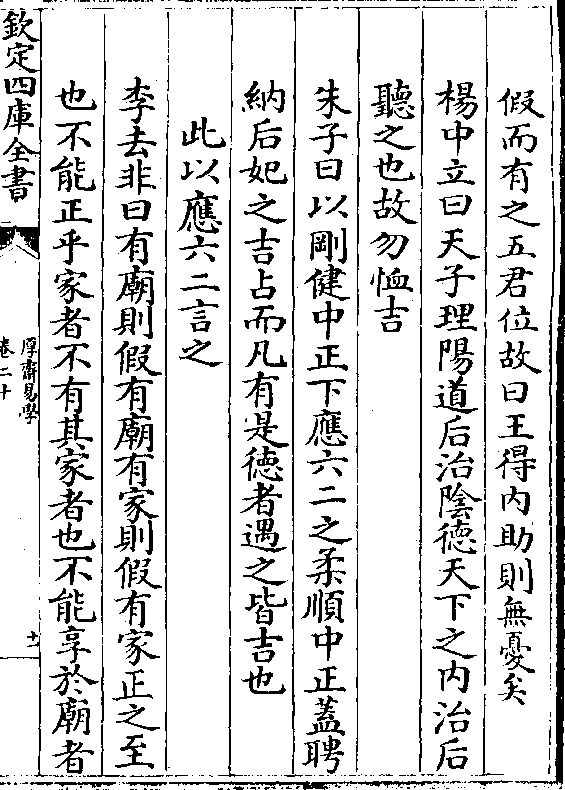 假而有之五君位故曰王得内助則無憂矣
楊中立曰天子理陽道后治陰德天下之内治后
聽之也故勿恤吉
朱子曰以剛健中正下應六二之柔順中正蓋聘
納后妃之吉占而凡有是德者遇之皆吉也
此以應六二言之
李去非曰有廟則假有廟有家則假有家正之至
也不能正乎家者不有其家者也不能享於廟者
欽定四庫全書
厚齋易學
卷二十
十一